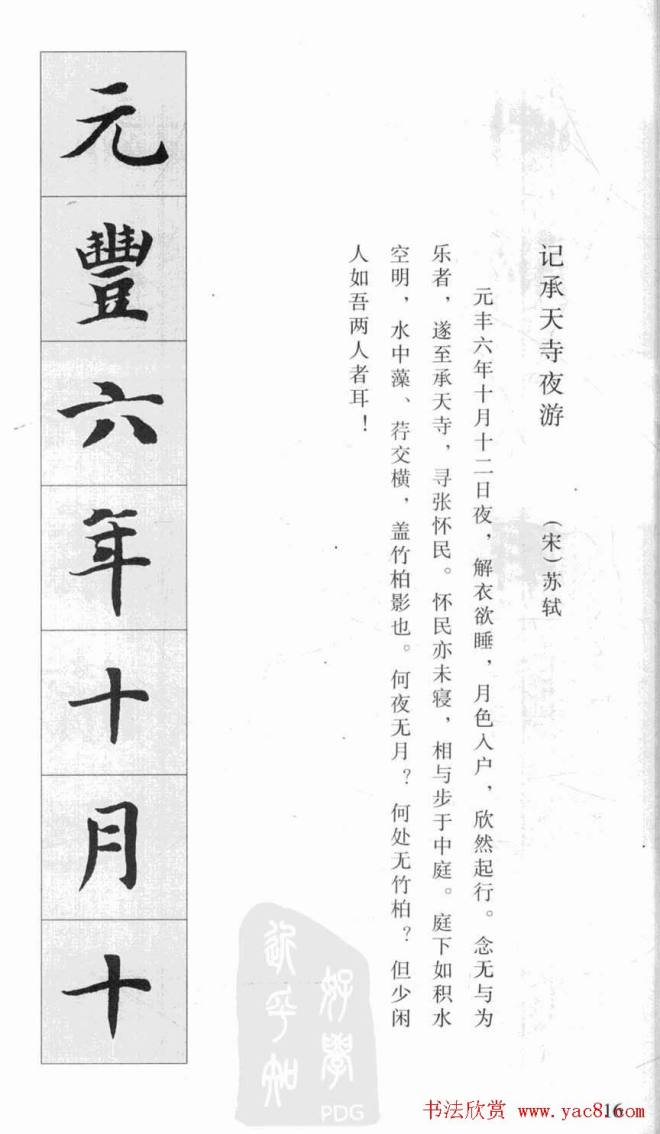 记承天寺夜游 （宋）苏轼
元丰六年十月十二日夜，解衣欲睡，月色入户，欣然起行。念无与为
乐者，遂至承天寺，寻张怀民。怀民亦未寝，相与步于中庭。庭下如积水
空明，水中藻、荇交横，盖竹柏影也。何夜无月？何处无竹柏？但少闲
人如吾两人者耳！
元豐六年十月十
好學
近乎知
PDG
16
书法欣赏 www.yac8.com